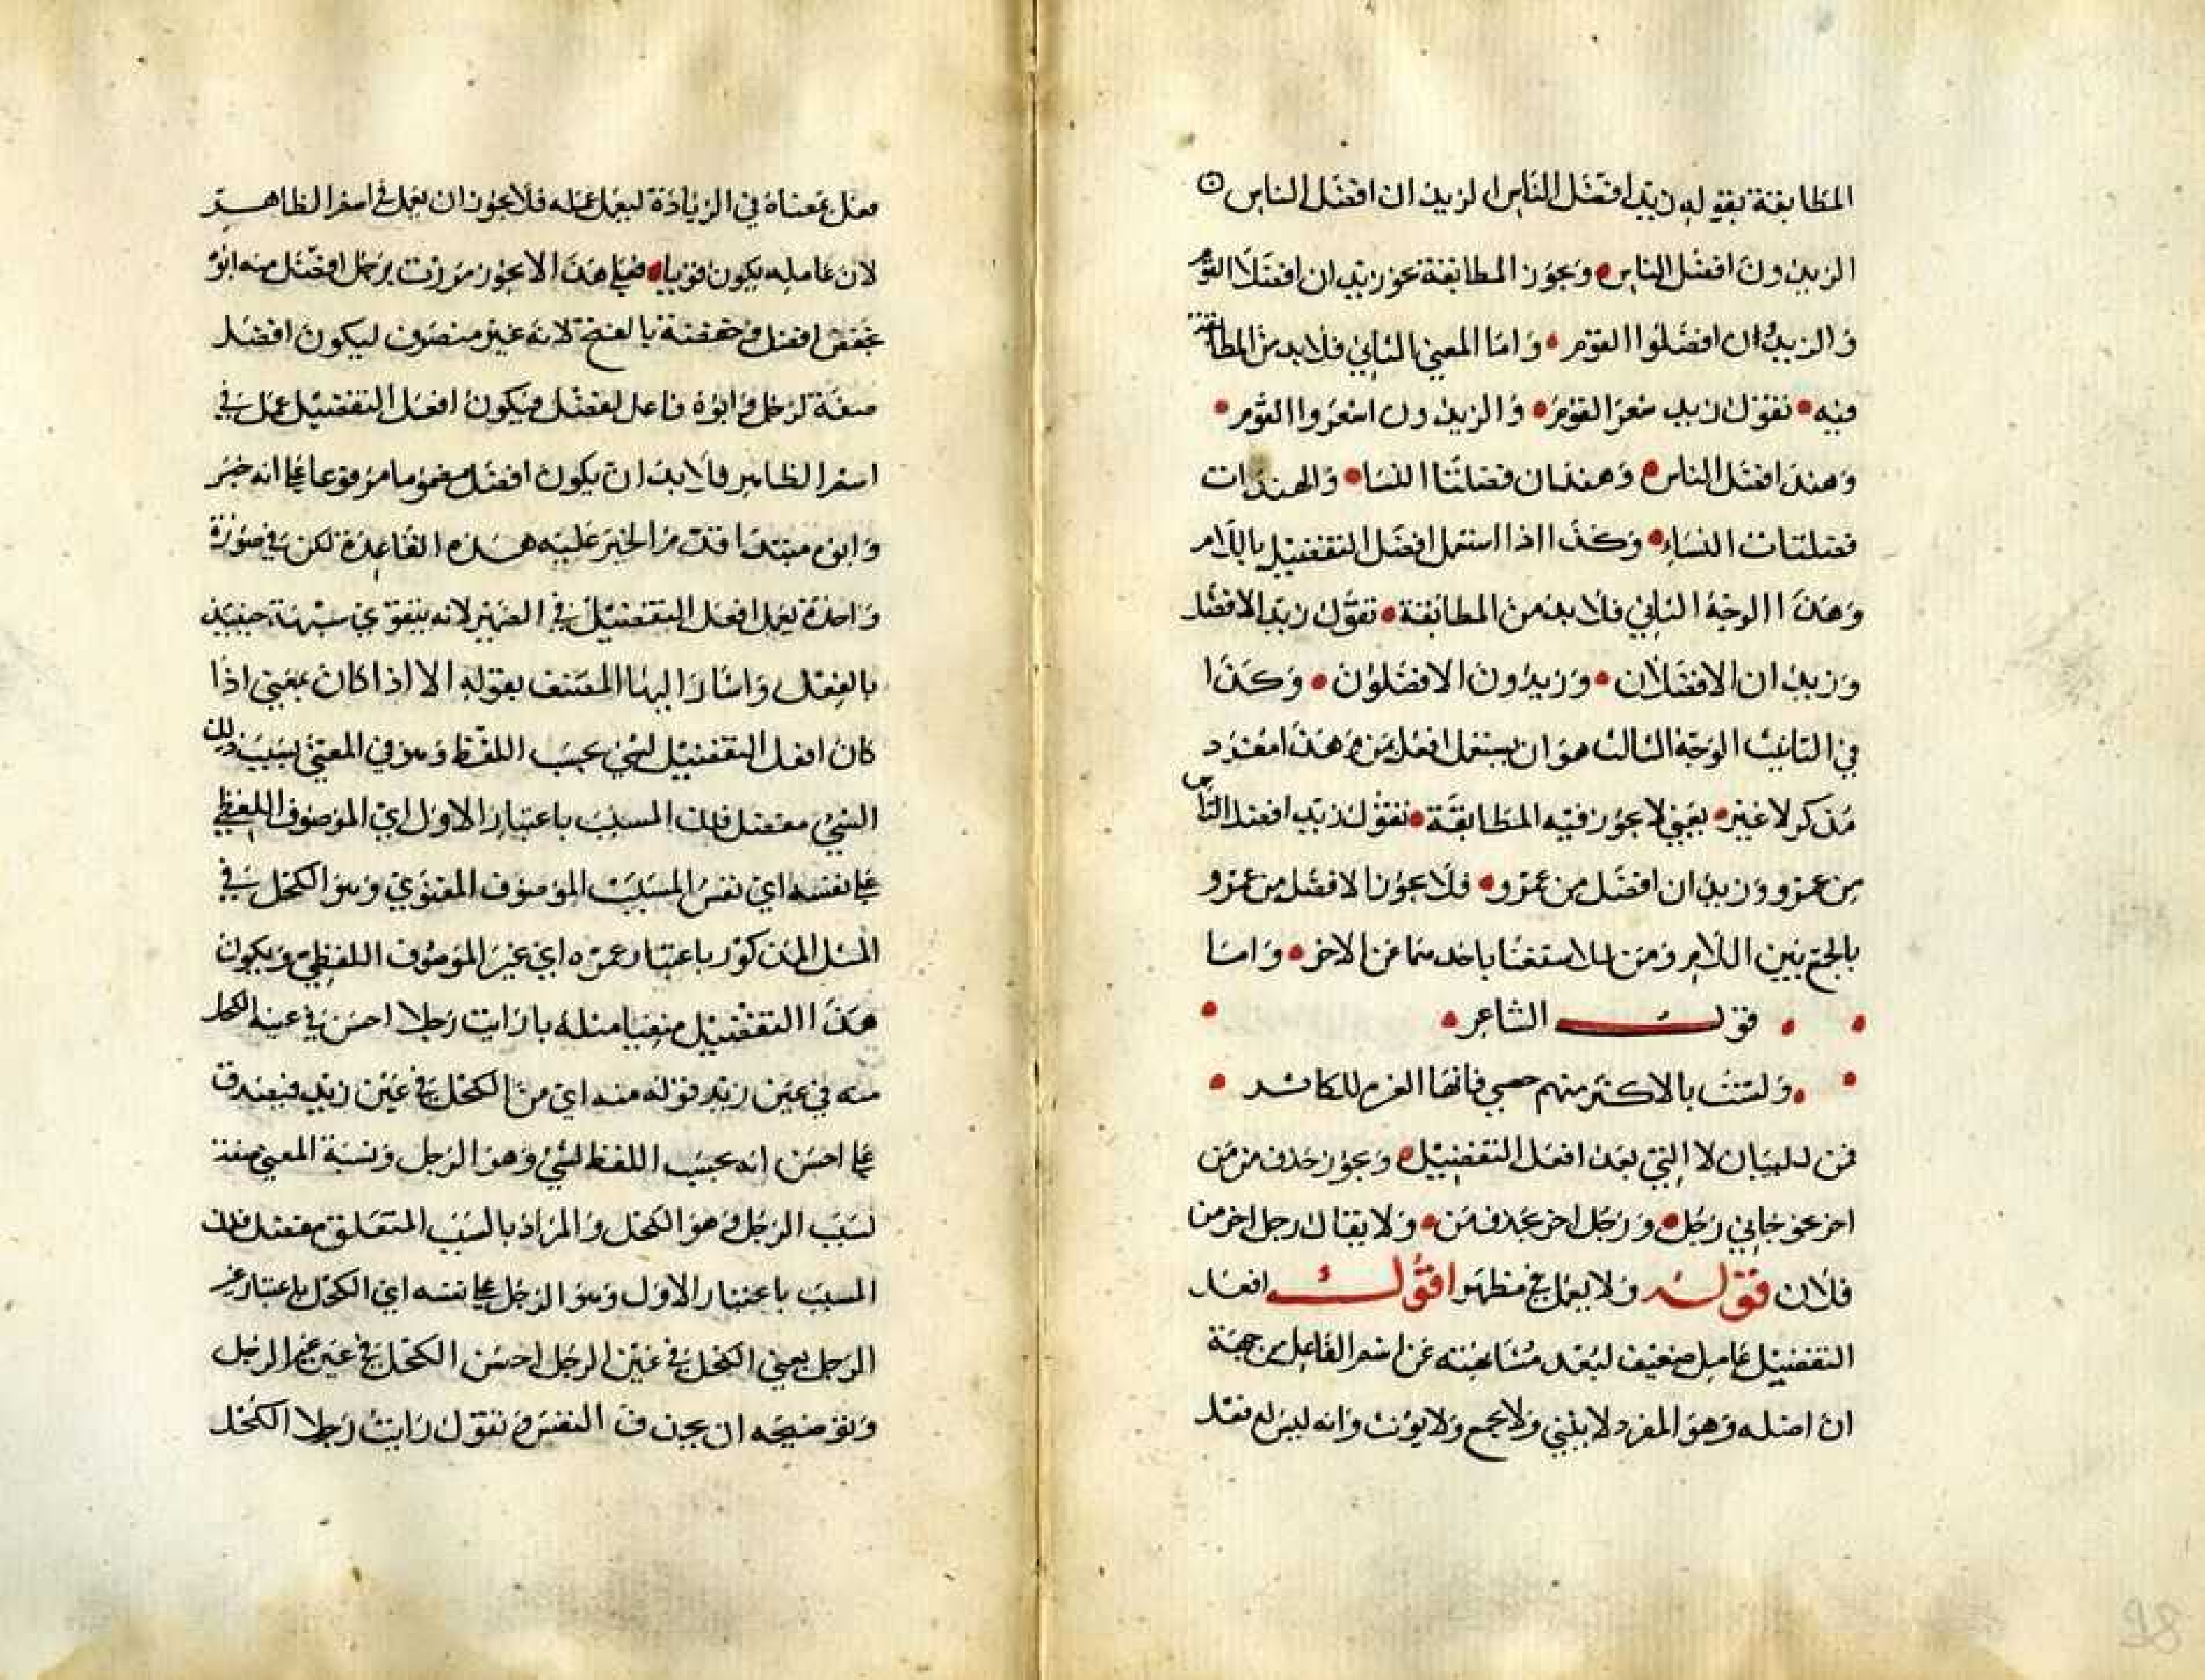 المطابقة بقوله زيد افضل الناس الزيدان افضل الناس
الزيدون افضل الناس • ويجوز المطابقة نحو زيدان افضلا القوم
والزيدون افضلوا القوم • واما المعنى الثاني فلا بد من المطابقة
فيه • تقول زيد شعر القوم • والزيدون اشعروا القوم •
وهند افضل الناس • وهندان فضلتا النسا • والهندات
فضلتات النساء • وكذا اذا استعمل افضل التفضيل باللام
وهذا الوجه الثاني فلا بد من المطابقة • تقول زيد الافضل
وزيدان الافضلان • وزيدون الافضلون • وكذا
في التانيث الوجه الثالث هو ان يستعمل افعل بمن وهذا مفرد
مذكر لا غير • يعني لا يجوز فيه المطابقة • تقول زيد افضل الناس
من عمرو وزيدان افضل من عمرو • فلا يجوز الافضل من عمرو
بالجمع بين اللام ومن للاستغنا باحدهما عن الاخر • واما
• • قول الشاعر • •
• • ولست بالاكثر منهم حصى فانما العز للكاثر •
فمن للبيان لا التي بعد افعل التفضيل • ويجوز حذف من من
اخر نحو جاني رجل • ورجل اخر بحذف من • ولا يقال رجل اخر من
فلان قوله ولا يعمل في مظهر اقول افعل
التفضيل عامل ضعيف لبعد مشابهته عن اسم الفاعل من جهة
ان اصله وهو المفرد لا يثني ولا يجمع ولا يونث وانه ليس له فعل
فعل بمعناه في الزيادة ليعمل عمله فلا يجوز ان يعمل في اسم الظاهر
لان عامله يكون قويا • فعلى هذا لا يجوز مررت برجل افضل منه ابوه
بخفض افضل وخفضة بالفتح لانه غير منصرف ليكون افضل
صفة لرجل وابوه فاعل لفضل ويكون افعل التفضيل عمل في
اسم الظاهر فلا بد ان يكون افضل مضموما مرفوعا على انه خبر
وابوه مبتدا قدم الخبر عليه هذه القاعدة لكن في صورة
واحدة يعمل افعل التفضيل في الضمير لانه يتقوى شبهه حينيذ
بالفعل واشار اليها المصنف بقوله الا اذا كان بمعني اذا
كان افعل التفضيل لشي بحسب اللفظ وهو في المعني بسبب ذلك
الشي مفضل ذلك المسبب باعتبار الاول اي الموصوف اللفظي
على نفسه اي نفس المسبب الموصوف المعنوي وهو الكحل في
المثل المذكور باعتبار غيره اي غير الموصوف اللفظي ويكون
هذا التفضيل منفيا مثله ما رايت رجلا احسن في عينه الكحل
منه في عين زيد قوله منه اي من الكحل في عين زيد فيصدق
على احسن انه بحسب اللفظ لشي وهو الرجل ونسبة المعني صفة
لسبب الرجل وهو الكحل والمراد بالسبب المتعلق مفضل ذلك
المسبب باعتبار الاول وهو الرجل على نفسه اي الكحل باعتبار غير
الرجل يعني الكحل في عين الرجل احسن الكحل في عين غير الرجل
وتوضيحه ان يحذف النفس وتقول رايت رجلا الكحل